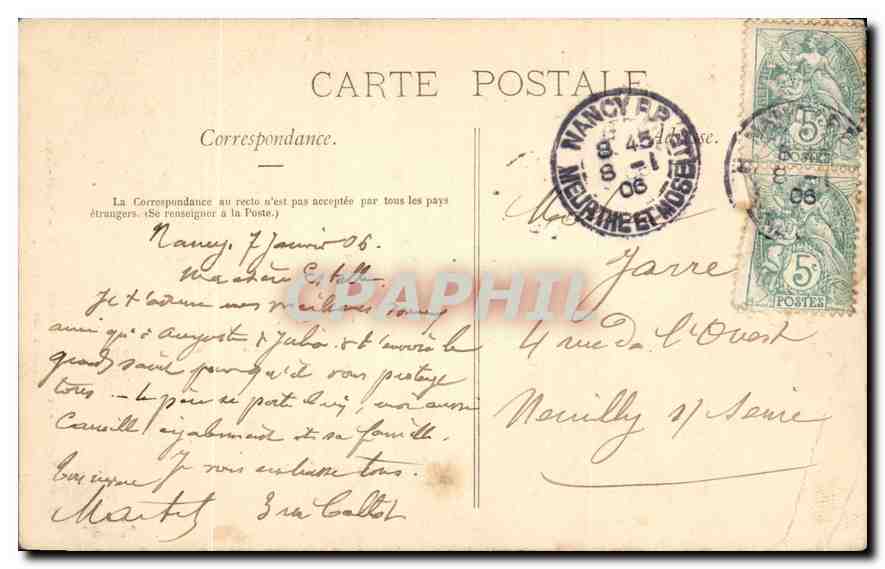 CARTE POSTALE
Correspondance.
Adresse.
La Correspondance au recto n'est pas acceptée par tous les pays
étrangers. (Se renseigner à la Poste.)
Nancy, 7 Janvier 06.
Ma chère Estelle
Je t'adresse mes meilleurs
ainsi qu'à Auguste & Julia & t'envoie le
grand saint pour qu'il vous protège
tous. – Le père se porte bien, moi aussi
Camille également et sa famille.
Je vous embrasse tous.
3 rue Callot
Jarre
4 rue de l'Ouest
Neuilly s/ Seine
NANCY R.P.
8 45
8 -1
06
MEURTHE ET MOSELLE
8
06
5c
POSTES
5c
POSTES
CPAPHIL